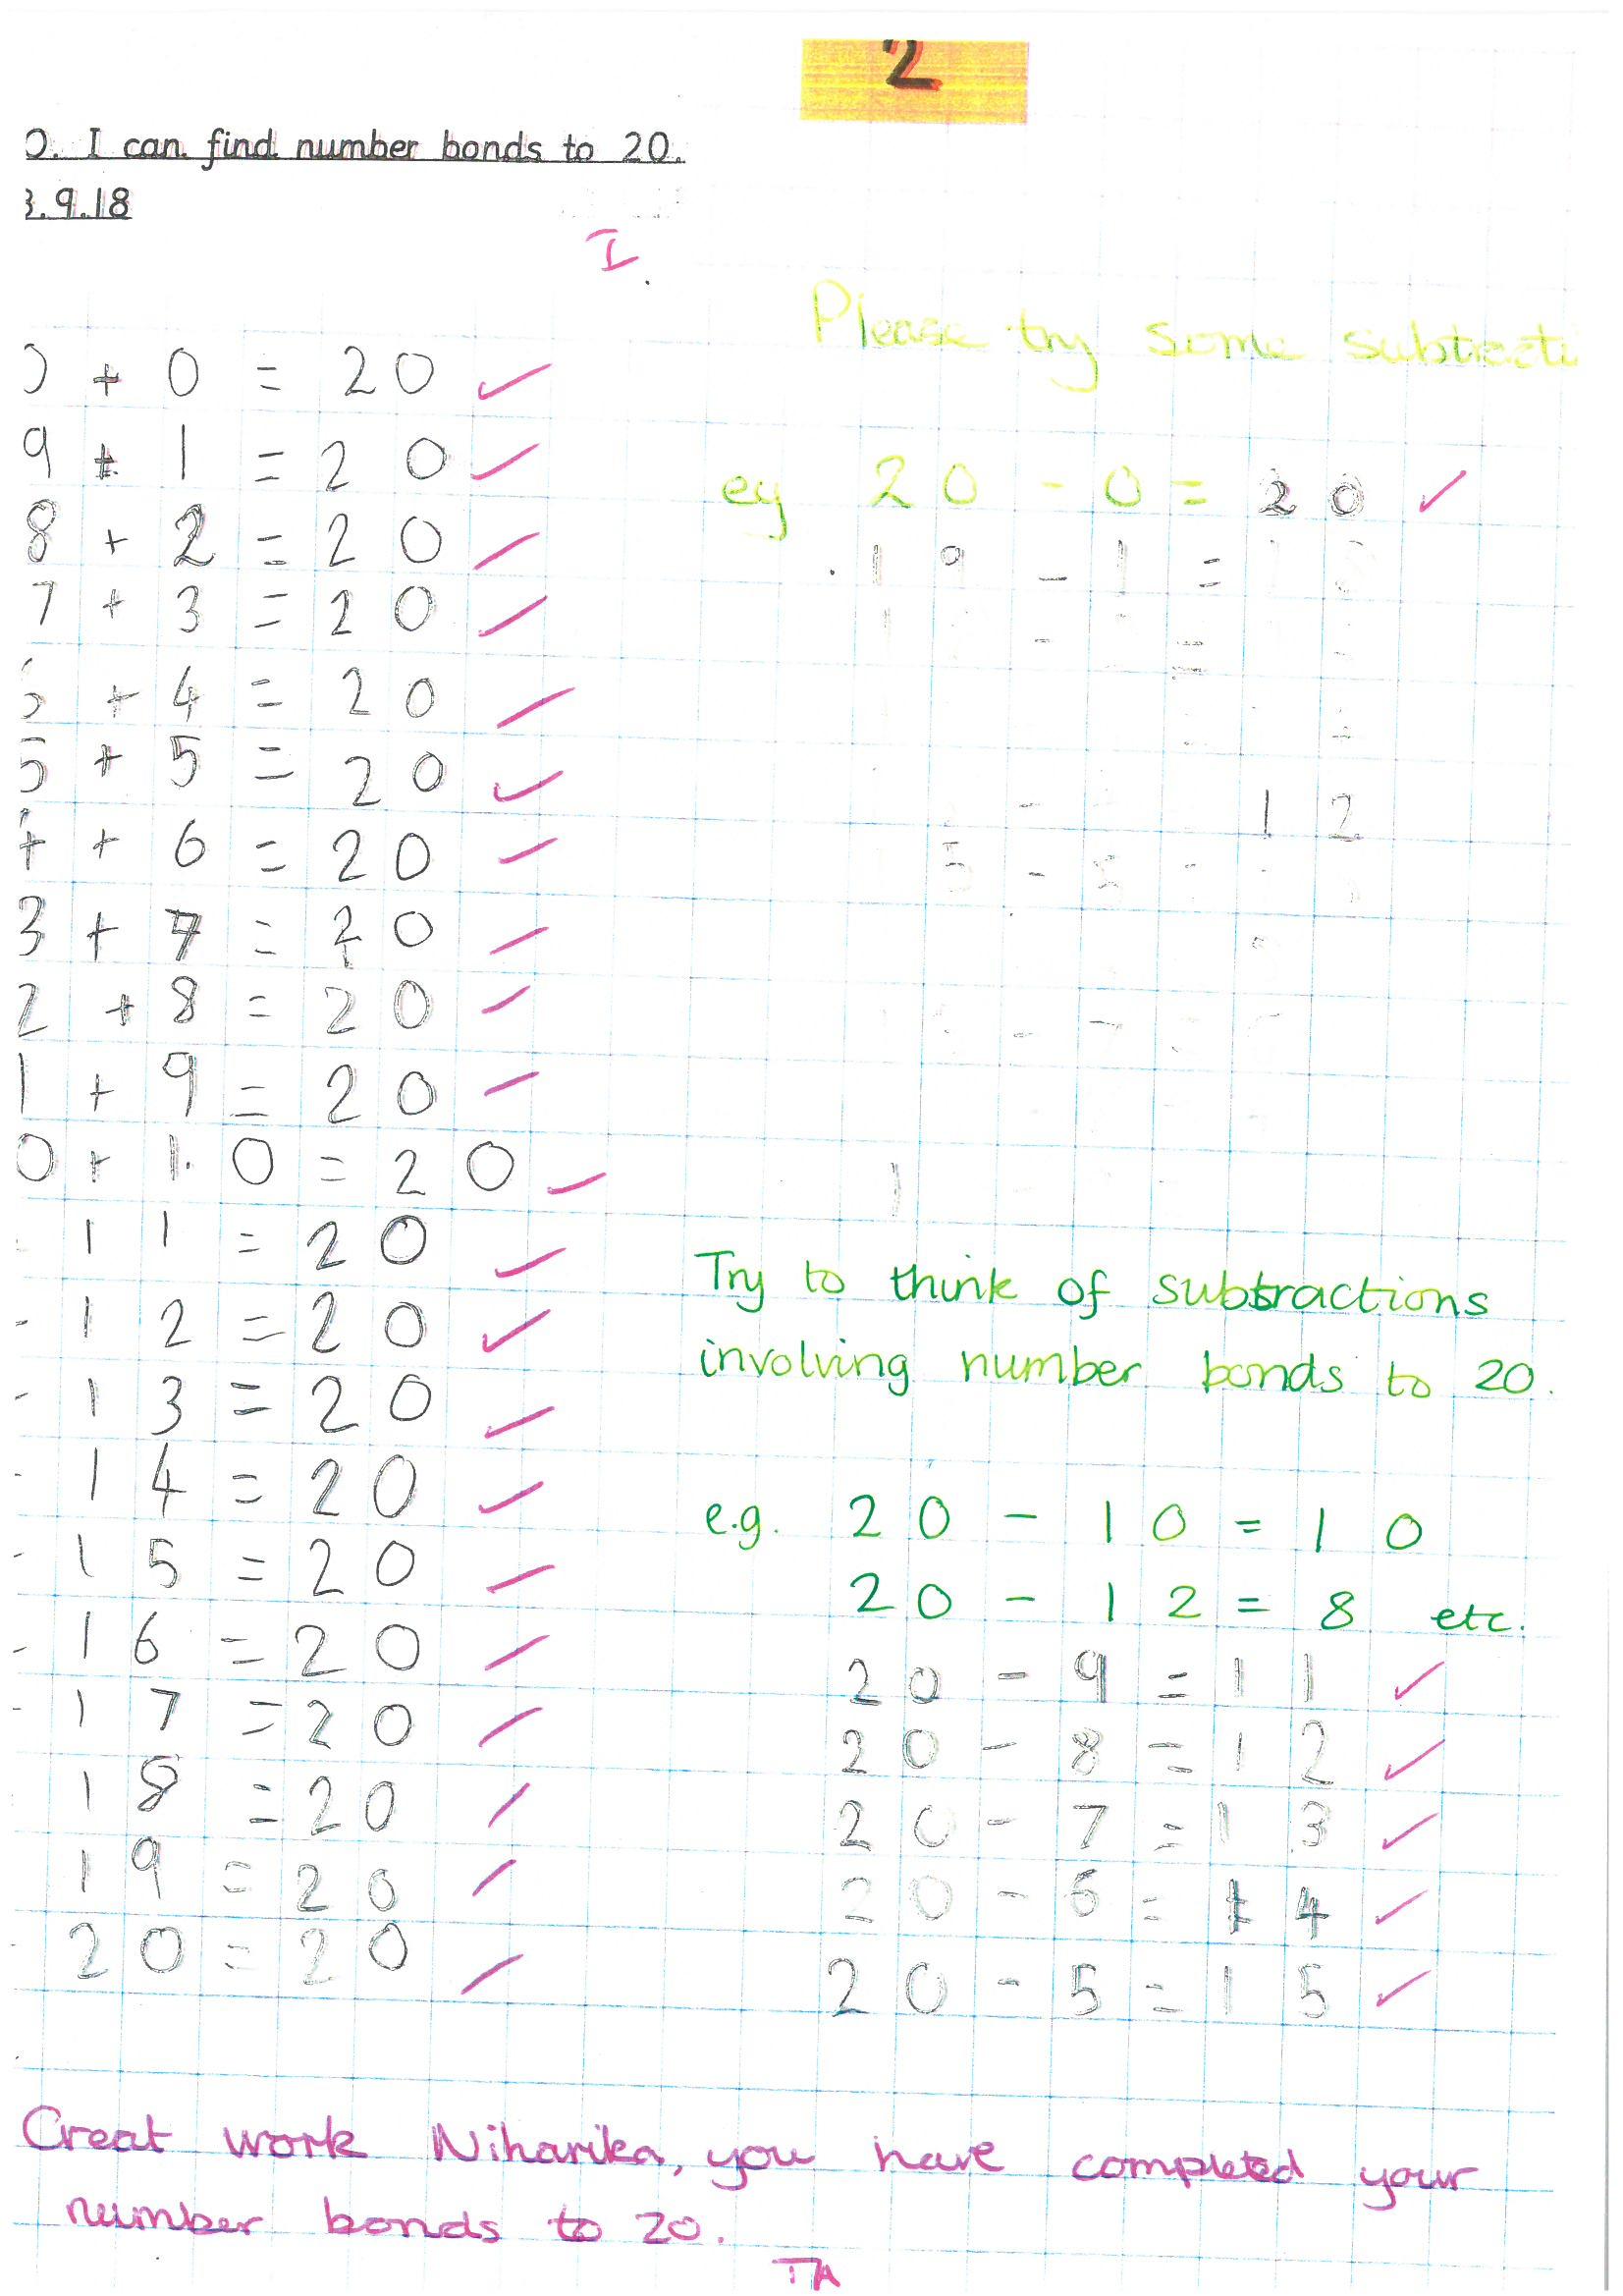 2
O. I can find number bonds to 20.
3.9.18
I
0 + 0 = 20
9 + 1 = 20
8 + 2 = 20
7 + 3 = 20
6 + 4 = 20
5 + 5 = 20
4 + 6 = 20
3 + 7 = 20
2 + 8 = 20
1 + 9 = 20
0 + 10 = 20
11 = 20
12 = 20
13 = 20
14 = 20
15 = 20
16 = 20
17 = 20
18 = 20
19 = 20
20 = 20
Please try some subtracti
eg 20 - 0 = 20
19 - 1 =
12
5 - 5
Try to think of subtractions
involving number bonds to 20.
e.g. 20 - 10 = 10
20 - 12 = 8 etc.
20 - 9 = 11
20 - 8 = 12
20 - 7 = 13
20 - 6 = 14
20 - 5 = 15
Great work Niharika, you have completed your
number bonds to 20.
TA